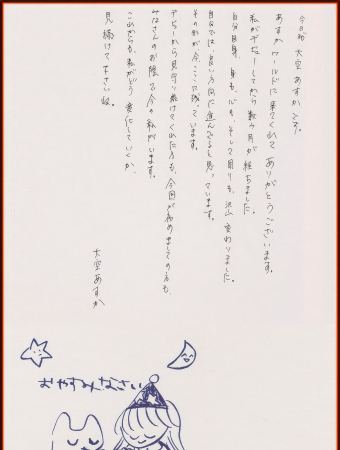 今日和 大空あすかです。
あすかワールドに来てくれてありがとうございます。
私がデビューしてから数ヶ月が経ちました。
自分自身、身も、心も、そして周りも、沢山変わりました。
自分では、良い方向に進んでると思っています。
その形が、今、ここに残っています。
デビューから見守り続けてくれた方も、今回が初めましての方も、
みなさんのお陰で今の私がいます。
これからも、私がどう変化していくか、
見届けて下さいね。
大空あすか
おやすみなさい